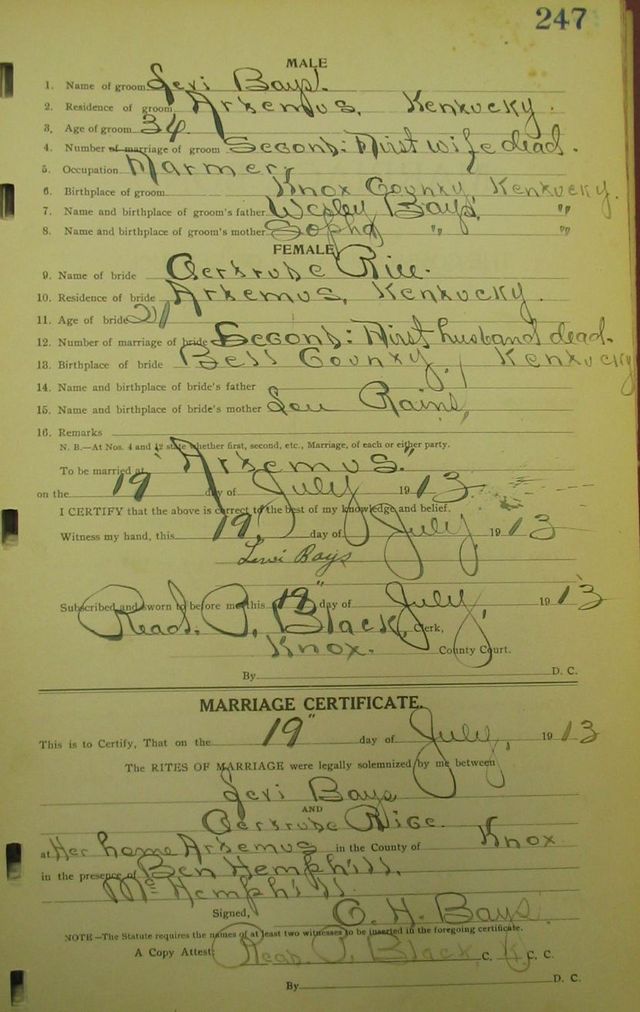 247
MALE
1. Name of groom Levi Bays.
2. Residence of groom Artemus, Kentucky.
3. Age of groom 34
4. Number of marriage of groom Second: First wife dead.
5. Occupation Farmer,
6. Birthplace of groom Knox County, Kentucky.
7. Name and birthplace of groom's father Wesley Bays, "
8. Name and birthplace of groom's mother " "
FEMALE
9. Name of bride Gertrude Rice.
10. Residence of bride Artemus, Kentucky.
11. Age of bride 21
12. Number of marriage of bride Second: First husband dead.
13. Birthplace of bride Bell County, Kentucky
14. Name and birthplace of bride's father
15. Name and birthplace of bride's mother Lou Rains,
16. Remarks
N. B.—At Nos. 4 and 12 state whether first, second, etc., Marriage, of each or either party.
To be married at "Artemus."
on the 19" day of July 1913.
I CERTIFY that the above is correct to the best of my knowledge and belief.
Witness my hand, this 19" day of July, 1913
Levi Bays
Subscribed and sworn to before me this 19" day of July, 1913
Read. P. Black, Clerk,
Knox. County Court.
By D. C.
MARRIAGE CERTIFICATE.
This is to Certify, That on the 19" day of July, 1913
The RITES OF MARRIAGE were legally solemnized by me between
Levi Bays
AND
Gertrude Rice.
at Her home Artemus in the County of Knox
in the presence of Ben Hemphill,
Hemphill.
Signed, G. H. Bays.
NOTE—The Statute requires the names of at least two witnesses to be inserted in the foregoing certificate.
A Copy Attest: Read. P. Black, C. K. C. C.
By D. C.